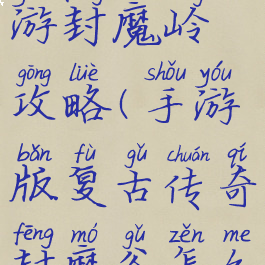 游封魔岭
gōng lüè shǒu yóu
攻略(手游
bǎn fù gǔ chuán qí
版复古传奇
fēng mó gǔ zěn me